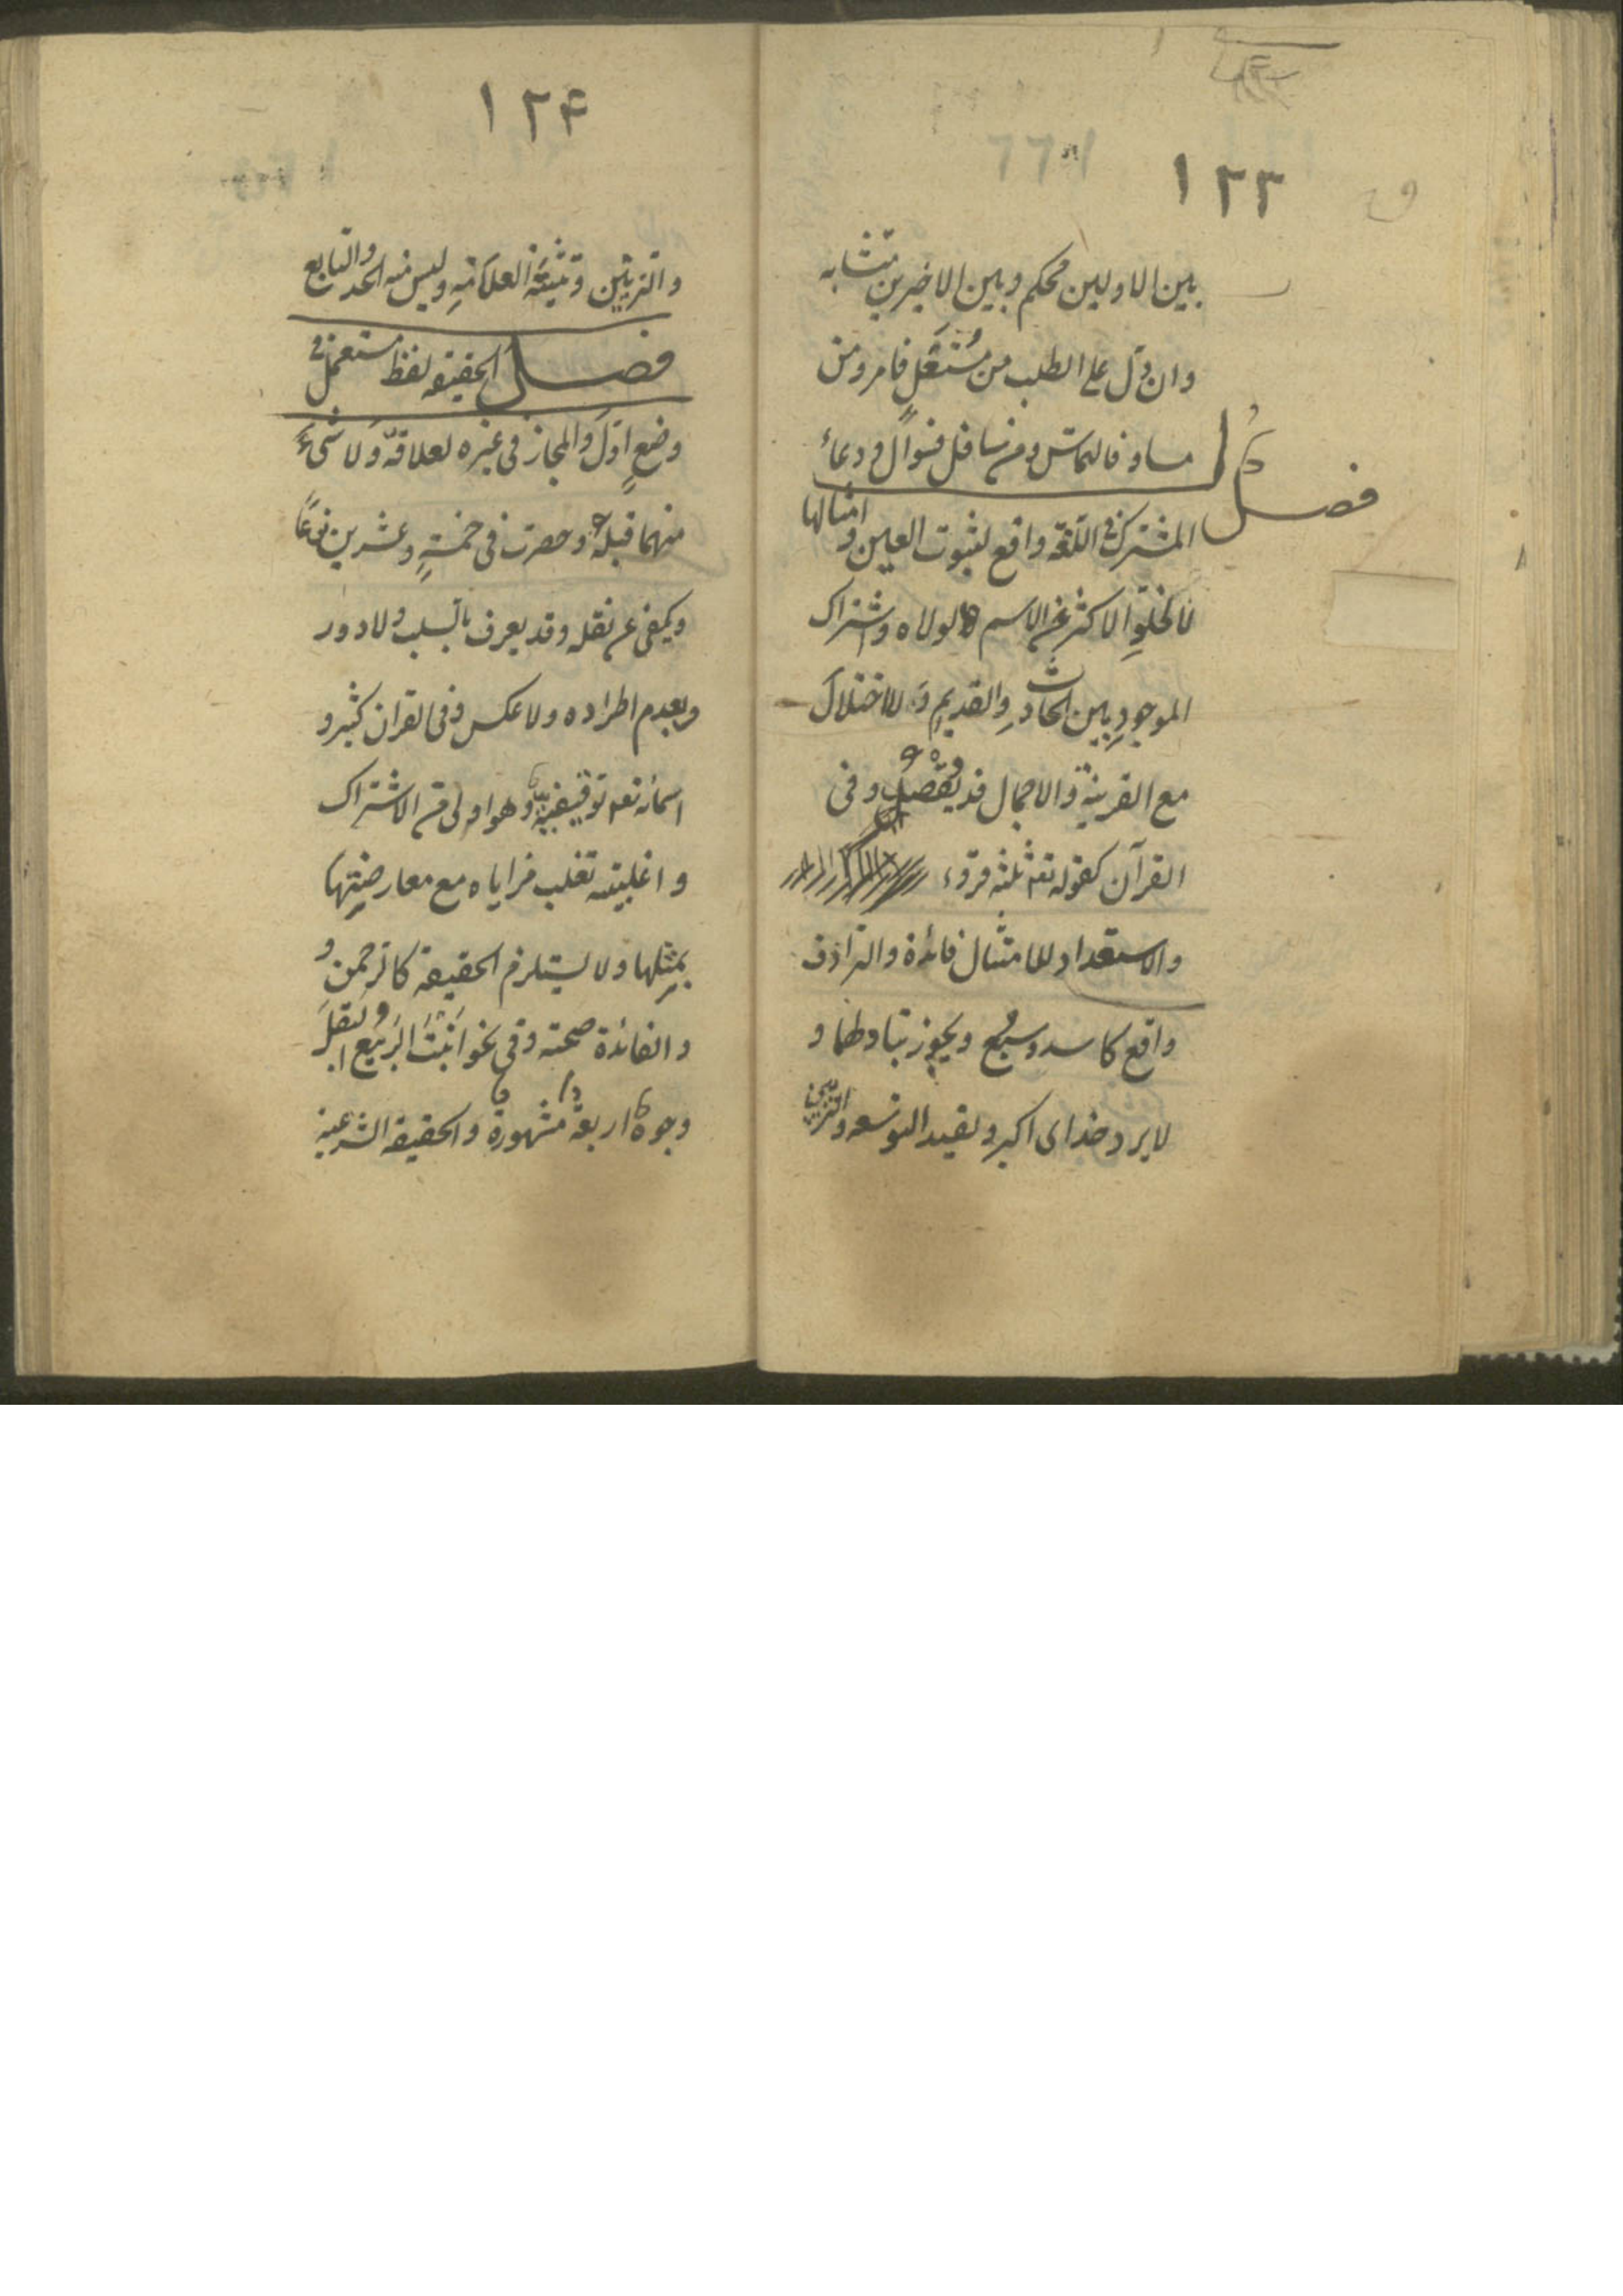 ۱۲۳
بين الاولين محكم وبين الاخيرين متشابه
وان دل على الطلب من مُسْتَعْلٍ فامر ومن
مساو فالتماس ومن سافل فسوالٌ ودعاءٌ
فصل
المشترك فى اللغة واقع لثبوت العين وامثالها
لا لخلوِّ الاكثر عن الاسم لولاه واشتراك
الموجودِ بين الحادثِ والقديمِ ولا اختلال
مع القرينة والاجمال قد يُقصد وفى
القرآن كقوله تعه ثلثه قروء
والاستعداد للامتثال فائدة والترادف
واقع كاسد وسبع ويجوز تبادلهما و
لا يرد خداى اكبر ولقيد التوسعه والتزيين
۱۲۴
والتزيين وليس منه الحد والتابع
فصل الحقيقه لفظ مستعمل فى
وضعٍ اوّل والمجاز فى غيره لعلاقة ولا شىءَ
منهما قبله وحصرت فى خمسةٍ وعشرين نوعًا
ويكفى عن نقله وقد يعرف بالسلب ولا دور
وبعدم اطراده ولا عكس وفى القران كثير و
اسمائه تعه توقيفية وهو اولى من الاشتراك
واغلبيته تغلب مزاياه مع معارضتها
بمثلها ولا يستلزم الحقيقة كالرحمن و
والفائدة صحته وفى نحو انبت الربيع البقل
وجوهٌ اربعة مشهورة والحقيقه الشرعية